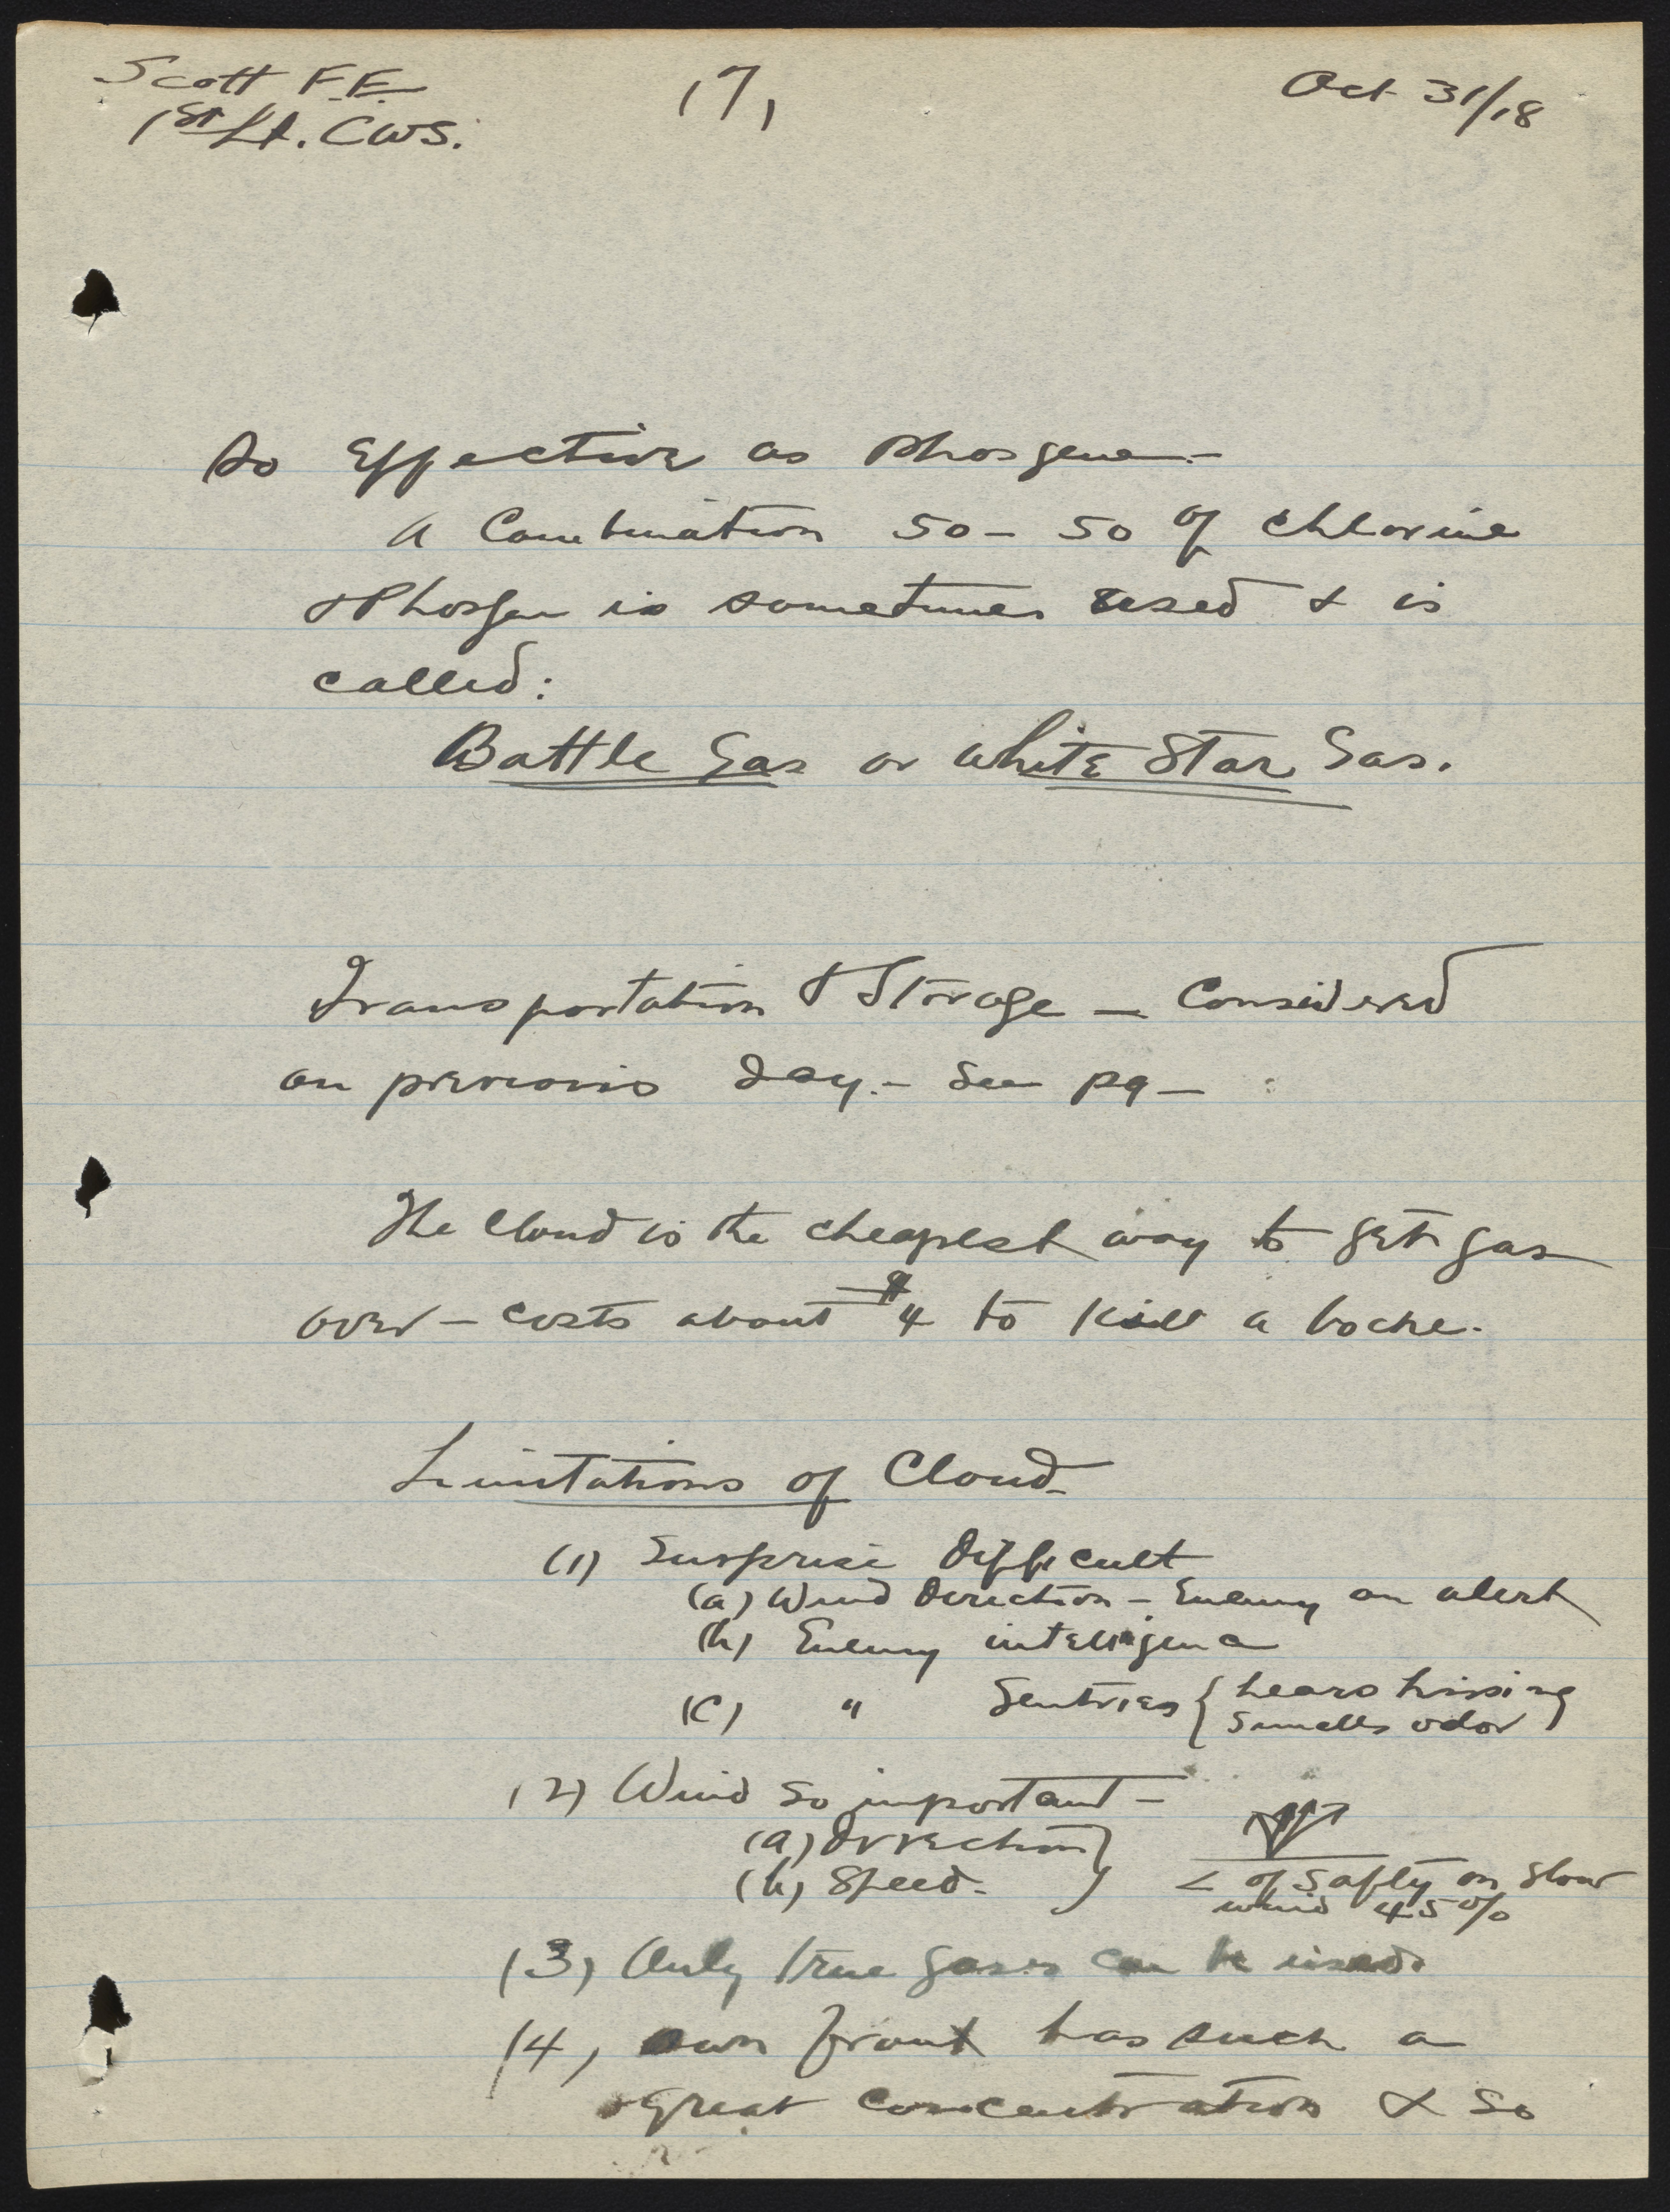 Scott F.E. 17, Oct 31/18
1st Lt. CWS.
so Effective as phosgene -
A Combination 50-50 of chlorine
& Phosgen is sometimes used & is
called:
Battle Gas or White Star Gas.
Transportation & Storage - Considered
on previous day. - See pg -
The cloud is the cheapest way to get gas
over - costs about $4 to kill a boche.
Limitations of Cloud -
(1) Surprise difficult
(a) Wind Direction - Enemy on alert
(b) Enemy intelligence
(c) " Sentries { hears hissing
smells odor }
(2) Wind so important -
(a) Direction }
(b) Speed. }
< of Safty on slow
wind 45%
(3) Only true gases can be used.
(4) own front has such a
great concentration & so